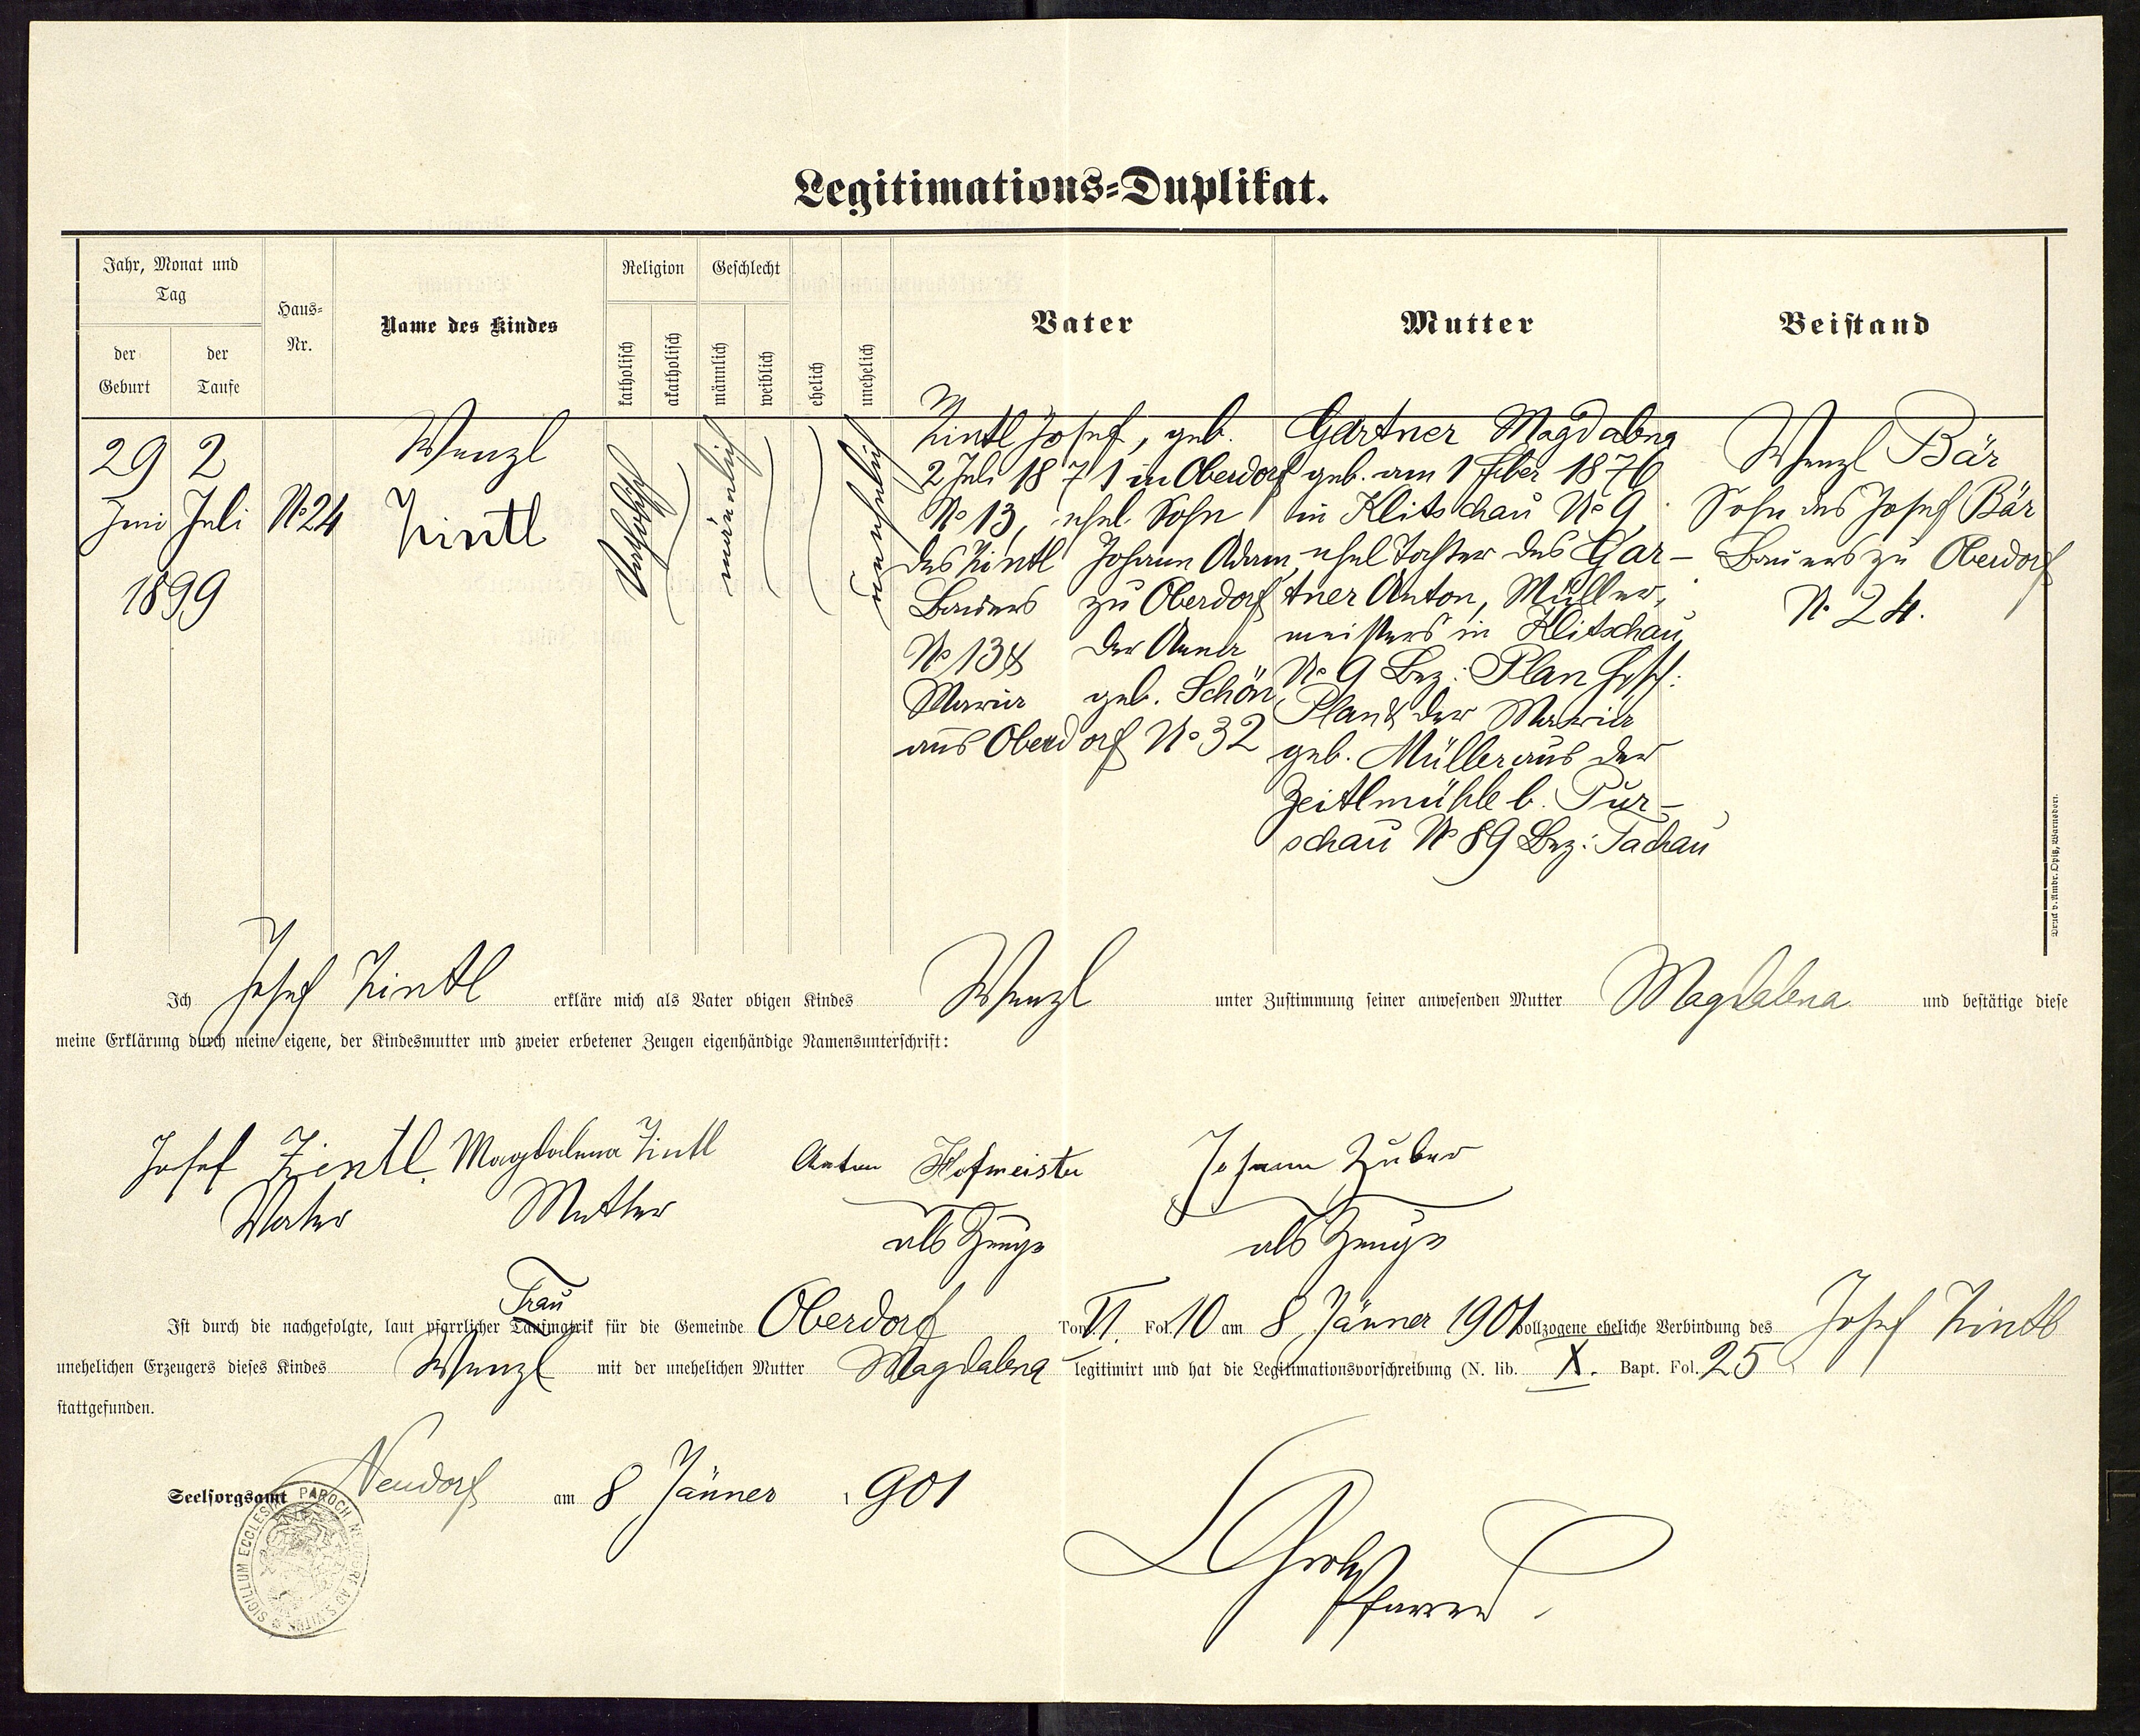 Legitimations-Duplikat.
Jahr, Monat und
Tag
der
Geburt
der
Taufe
Haus-
Nr.
Name des Kindes
Religion
katholisch
akatholisch
Geschlecht
männlich
weiblich
ehelich
unehelich
Vater
Mutter
Beistand
29
Juni
2
Juli
1899
No 24
Wenzl
Zintl
katholisch
männlich
unehelich
Zintl Josef, geb.
2 Juli 1871 in Oberdorf
No 13, ehel. Sohn
des Zintl Johann Adam,
Bauers zu Oberdorf
No 13 & der Anna
Maria geb. Schön
aus Oberdorf No 32
Gärtner Magdalena
geb. am 1 Feber 1876
in Klitschau No 9,
ehel Tochter des Gär-
tner Anton, Müller-
meisters in Klitschau
No 9 Bez: Plan Hptsch:
Plan & der Maria
geb. Müller aus der
Zeitlmühle b. Pur-
schau No 89 Bez: Tachau
Wenzl Bär
Sohn des Josef Bär
Bauers zu Oberdorf
No 24.
Druck v. Ambr. Opitz, Warnsdorf.
Ich Josef Zintl erkläre mich als Vater obigen Kindes Wenzl unter Zustimmung seiner anwesenden Mutter Magdalena und bestätige diese
meine Erklärung durch meine eigene, der Kindesmutter und zweier erbetener Zeugen eigenhändige Namensunterschrift:
Josef Zintl Magdalena Zintl Anton Hofmeister Johann Zuber
Vater Mutter als Zeuge als Zeuge
Trau
Ist durch die nachgefolgte, laut pfarrlicher Taufmatrik für die Gemeinde Oberdorf Tom VI. Fol. 10 am 8 Jänner 1901 vollzogene eheliche Verbindung des Josef Zintl
unehelichen Erzeugers dieses Kindes Wenzl mit der unehelichen Mutter Magdalena legitimirt und hat die Legitimationsvorschreibung (N. lib. X. Bapt. Fol. 25
stattgefunden.
Seelsorgsamt Neudorf am 8 Jänner 1901
SIGILLUM ECCLESIAE PAROCH. NEUDORF AD S. VITUM
Pfarrer.